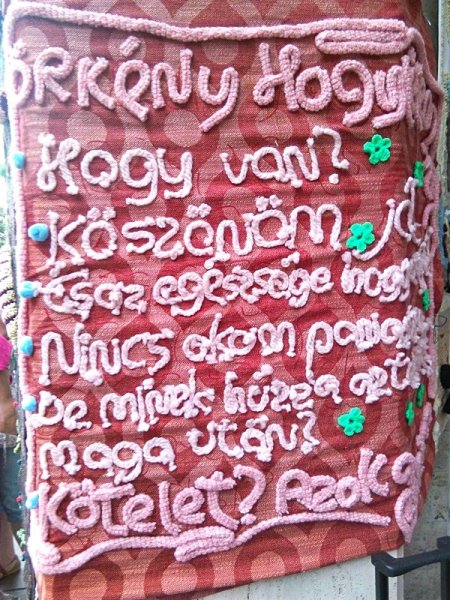 ÖRKÉNY Hogy
Hogy van?
Köszönöm
És az egészsége
Nincs okom
De minek húzza azt a
maga után?
Kötelet? Azok